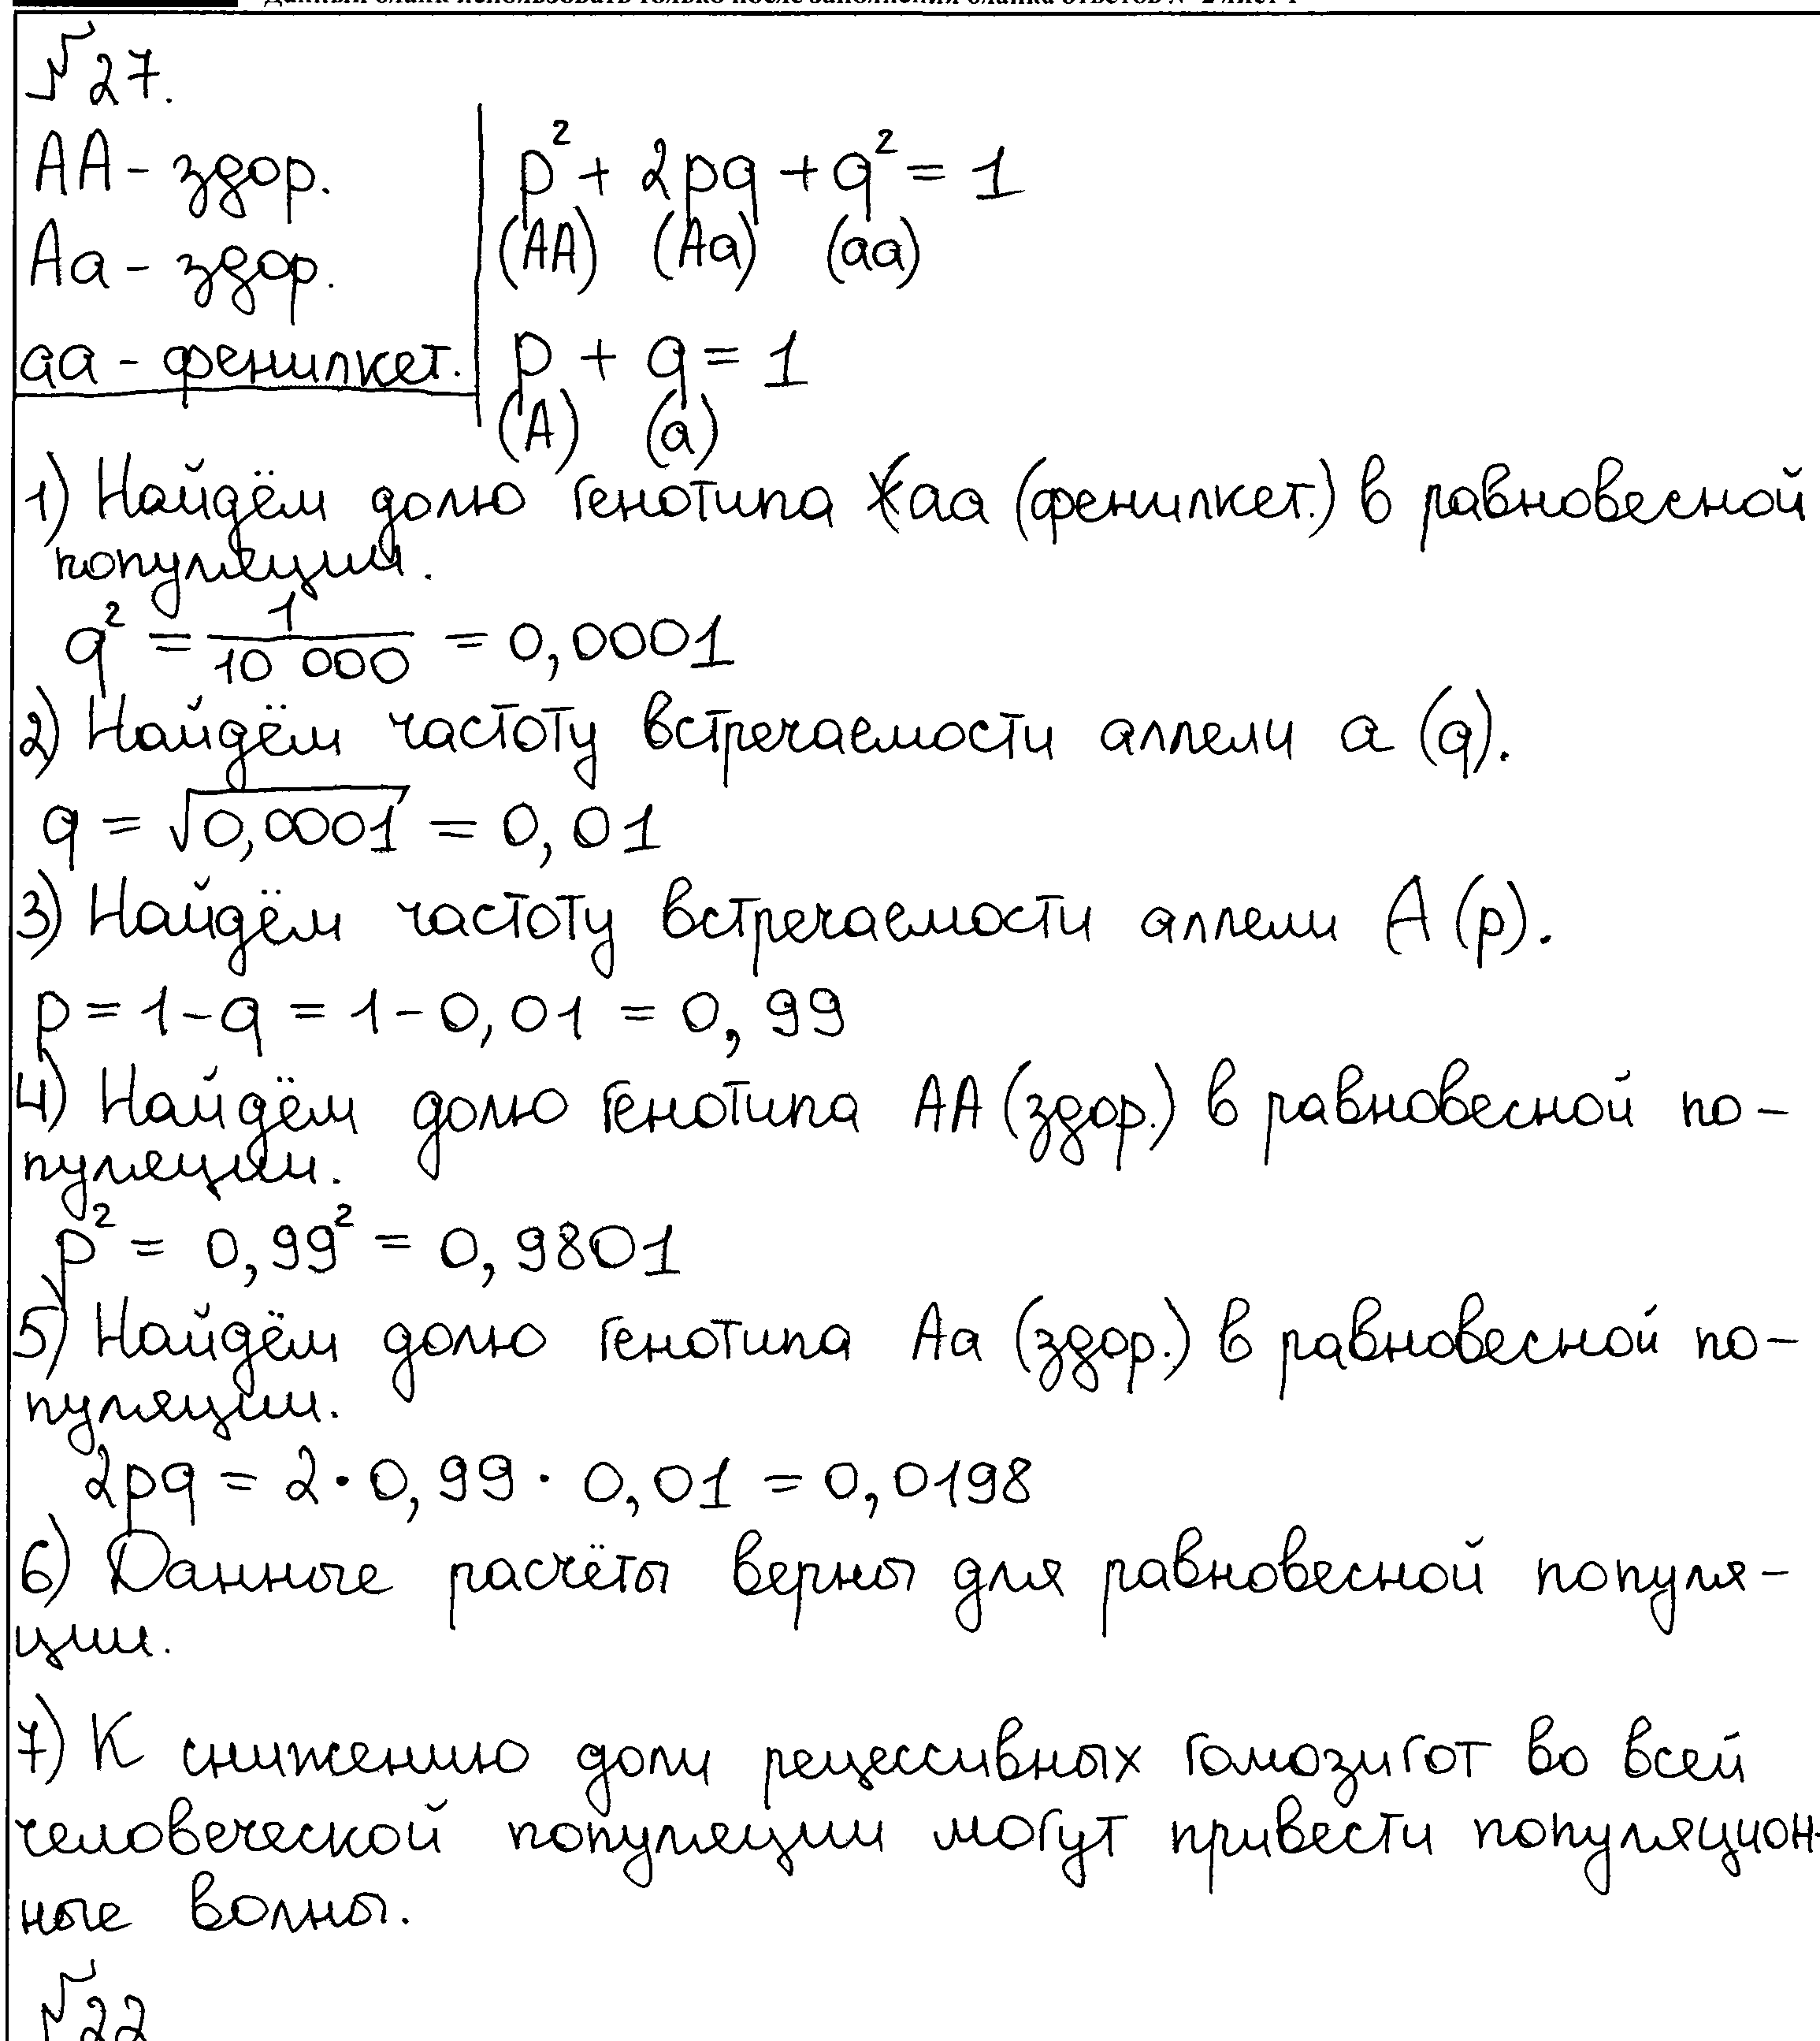 Данный бланк использовать только после заполнения бланка ответов № 2 лист 1
№27.
AA - здор.
Aa - здор.
aa - фенилкет.
p² + 2pq + q² = 1
(AA) (Aa) (aa)
p + q = 1
(A) (a)
1) Найдём долю генотипа aa (фенилкет.) в равновесной
популяции.
q² = 1/10 000 = 0,0001
2) Найдём частоту встречаемости аллели a (q).
q = √0,0001 = 0,01
3) Найдём частоту встречаемости аллели A (p).
p = 1 - q = 1 - 0,01 = 0,99
4) Найдём долю генотипа AA (здор.) в равновесной по-
пуляции.
p² = 0,99² = 0,9801
5) Найдём долю генотипа Aa (здор.) в равновесной по-
пуляции.
2pq = 2 · 0,99 · 0,01 = 0,0198
6) Данные расчёты верны для равновесной популя-
ции.
7) К снижению доли рецессивных гомозигот во всей
человеческой популяции могут привести популяцион-
ные волны.
№22